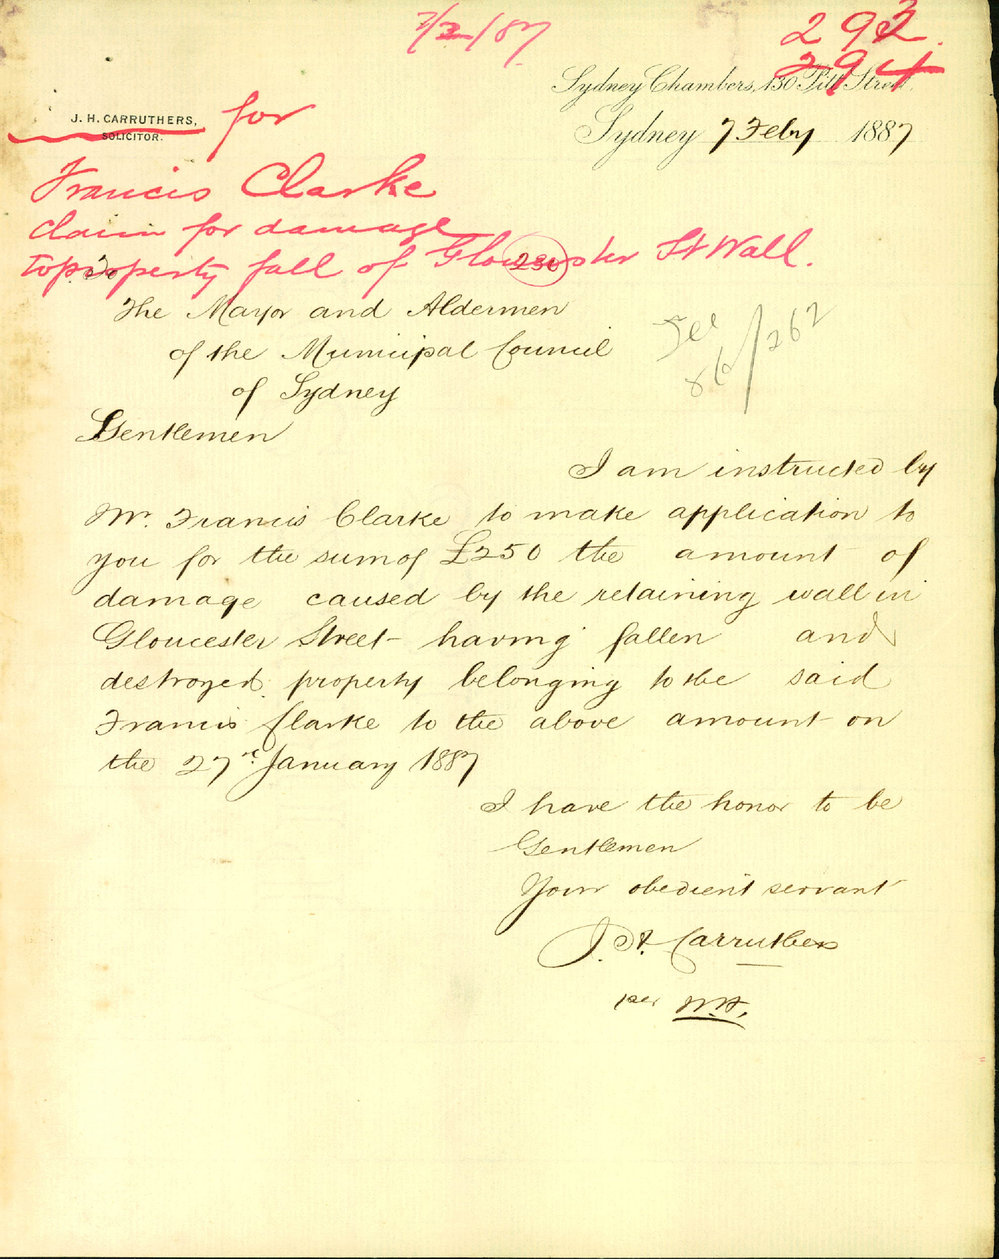 7/2/87
293
294
Sydney Chambers, 130 Pitt Street,
J. H. CARRUTHERS,
SOLICITOR.
for
Sydney 7 Feby 1887
Francis Clarke
claim for damage
to property fall of Gloucester St Wall.
230
To
The Mayor and Aldermen
of the Municipal Council
of Sydney
See
86/262
Gentlemen
I am instructed by
Mr. Francis Clarke to make application to
you for the sum of £250 the amount of
damage caused by the retaining wall in
Gloucester Street having fallen and
destroyed property belonging to the said
Francis Clarke to the above amount on
the 27th January 1887
I have the honor to be
Gentlemen
Your obedient servant
J. H. Carruthers
per W.H.